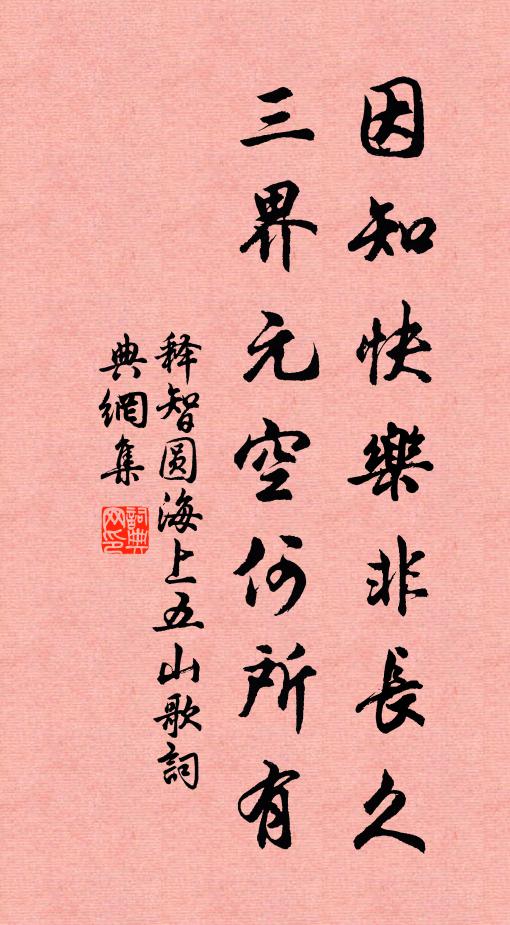 因知快樂非長久
三界元空何所有
释智圆海上五山歌詞
典網集
詞典
网印